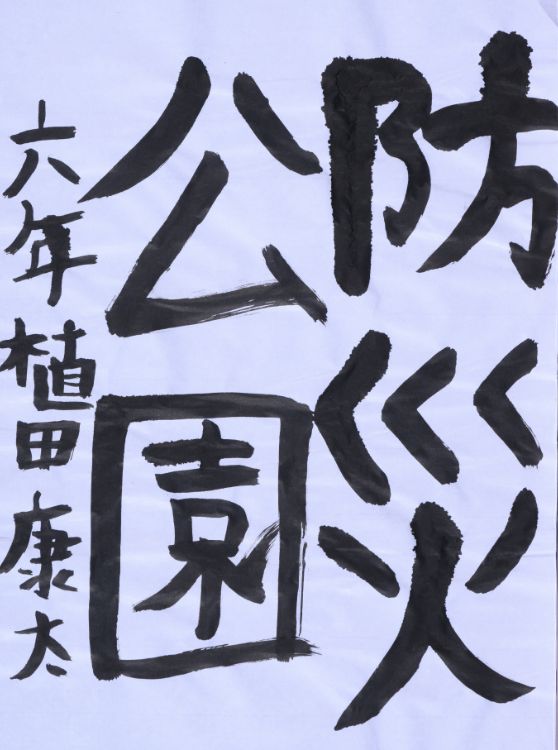 防災
公園
六年植田康太